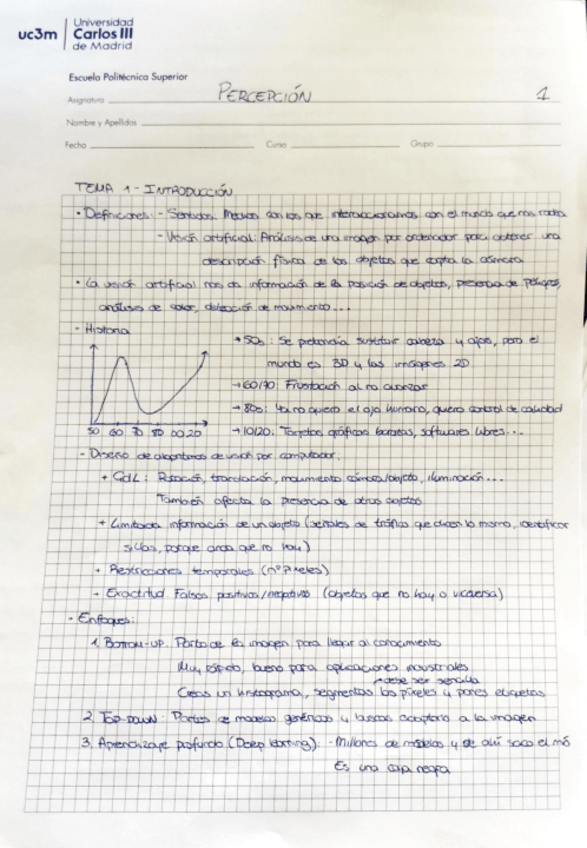 uc3m
Universidad
Carlos III
de Madrid
Escuela Politécnica Superior
Asignatura PERCEPCIÓN 1
Nombre y Apellidos
Fecha Curso Grupo
TEMA 1 - INTRODUCCIÓN
· Definiciones: - Sentidos: Medios con los que interaccionamos con el mundo que nos rodea
- Visión artificial: Análisis de una imagen por ordenador para obtener una
descripción física de los objetos que capta la cámara
· La visión artificial nos da información de la posición de objetos, presencia de peligros,
análisis de color, detección de movimiento...
- Historia
→ 50s: Se pretendía sustituir cabeza y ojos, pero el
mundo es 3D y las imágenes 2D
→ 60/70: Frustración al no avanzar
→ 80s: Ya no quiero el ojo humano, quiero control de calidad
→ 10/20: Tarjetas gráficas baratas, softwares libres...
50 60 70 80 00 20
- Diseño de algoritmos de visión por computador:
+ GdL: Rotación, translación, movimiento cámara/objeto, iluminación...
También afecta la presencia de otros objetos
+ Limitada información de un objeto (señales de tráfico que dicen lo mismo, identificar
sillas, porque anda que no hay)
+ Restricciones temporales (nº Pixeles)
+ Exactitud. Falsos positivos/negativos (objetos que no hay o viceversa)
- Enfoques:
1. BOTTOM-UP: Parto de la imagen para llegar al conocimiento
Muy rápido, bueno para aplicaciones industriales
debe ser sencilla
Creas un histograma, segmentas los píxeles y pones etiquetas
2. TOP-DOWN: Partes de modelos genéricos y buscas adaptarlo a la imagen
3. Aprendizaje profundo (Deep learning): - Millones de modelos y de ahí saco el mío
Es una caja negra